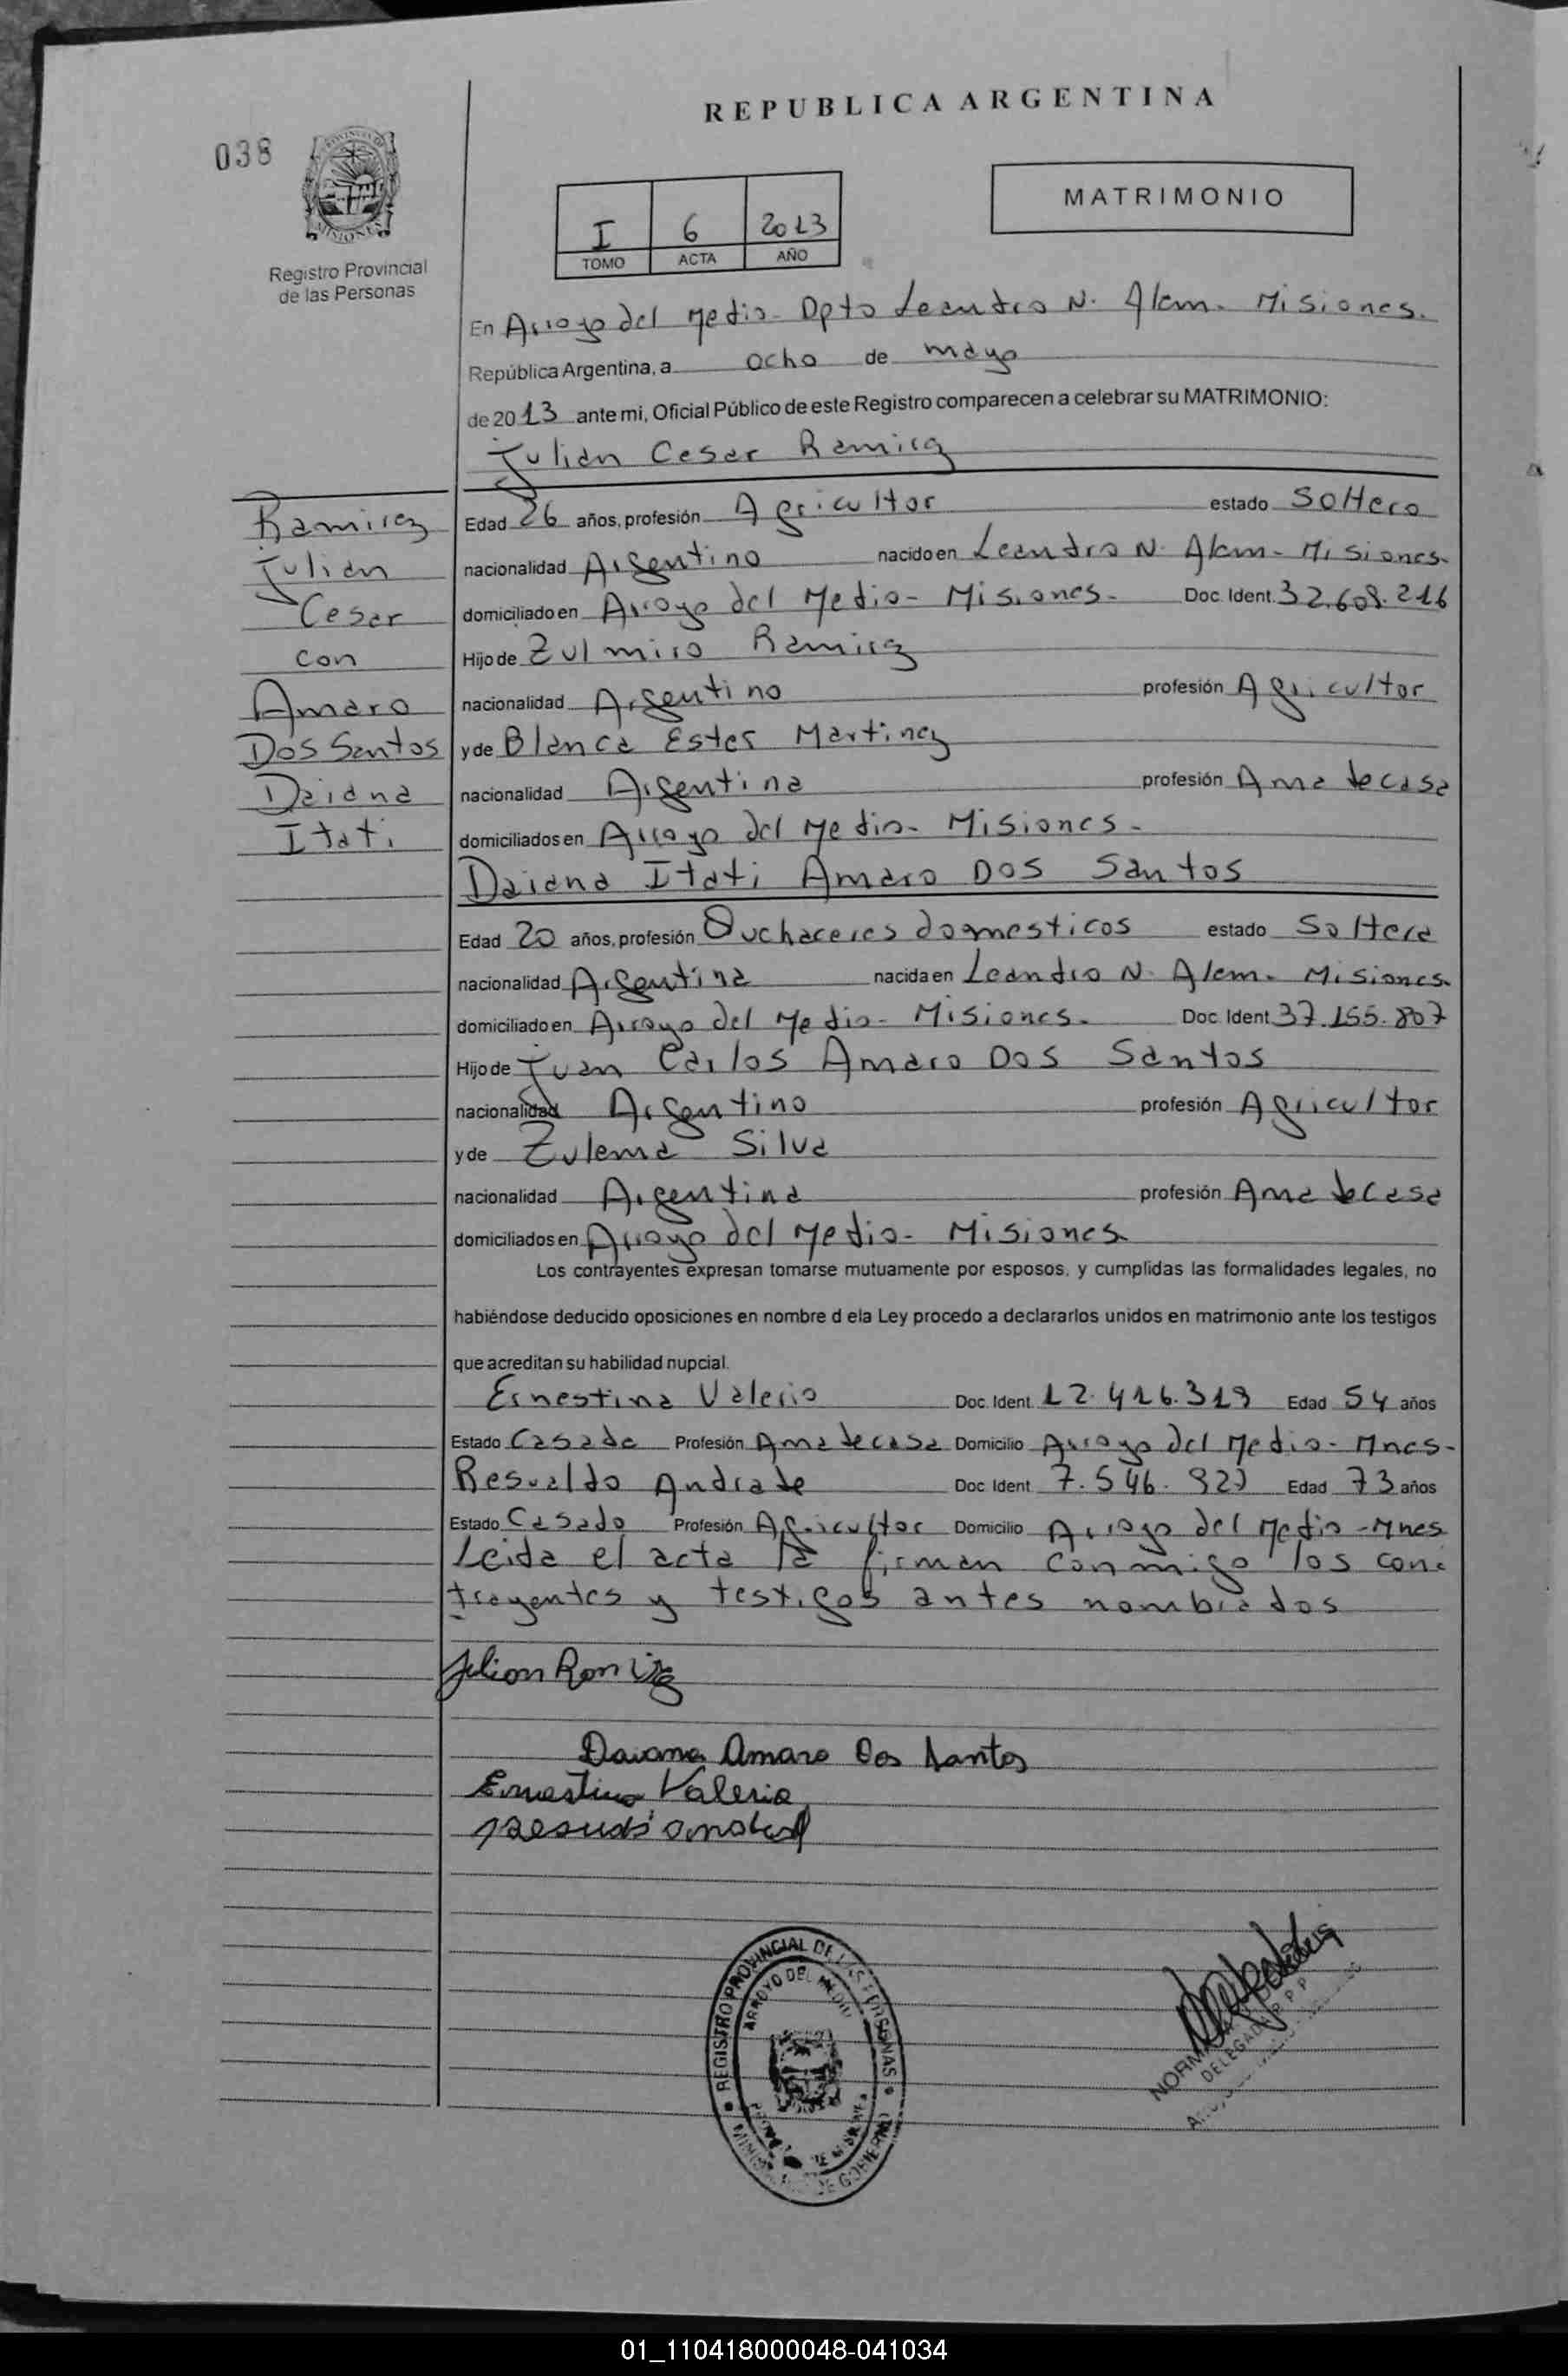 REPUBLICA ARGENTINA
038
MATRIMONIO
I 6 2013
TOMO ACTA AÑO
Registro Provincial
de las Personas
En Arroyo del Medio - Dpto Leandro N. Alem - Misiones.
República Argentina, a ocho de mayo
de 2013 ante mi, Oficial Público de este Registro comparecen a celebrar su MATRIMONIO:
Julian Cesar Ramirez
Ramirez
Julian
Cesar
con
Amaro
Dos Santos
Daiana
Itati
Edad 26 años, profesión Agricultor estado Soltero
nacionalidad Argentino nacido en Leandro N. Alem - Misiones.
domiciliado en Arroyo del Medio - Misiones. Doc. Ident. 32.608.216
Hijo de Zulmiro Ramirez
nacionalidad Argentino profesión Agricultor
y de Blanca Ester Martinez
nacionalidad Argentina profesión Ama de casa
domiciliados en Arroyo del Medio - Misiones -
Daiana Itati Amaro Dos Santos
Edad 20 años, profesión Quchaceres domesticos estado Soltera
nacionalidad Argentina nacida en Leandro N. Alem - Misiones.
domiciliado en Arroyo del Medio - Misiones. Doc. Ident 37.155.807
Hijo de Juan Carlos Amaro Dos Santos
nacionalidad Argentino profesión Agricultor
y de Zulema Silva
nacionalidad Argentina profesión Ama de casa
domiciliados en Arroyo del Medio - Misiones
Los contrayentes expresan tomarse mutuamente por esposos, y cumplidas las formalidades legales, no
habiéndose deducido oposiciones en nombre d ela Ley procedo a declararlos unidos en matrimonio ante los testigos
que acreditan su habilidad nupcial.
Ernestina Valerio Doc. Ident. 12.416.319 Edad 54 años
Estado Casada Profesión Ama de casa Domicilio Arroyo del Medio - Mnes -
Resualdo Andrade Doc Ident 7.546. Edad 73 años
Estado Casado Profesión Agricultor Domicilio Arroyo del Medio - Mnes
Leida el acta la firman conmigo los con-
trayentes y testigos antes nombrados
Julian Ramirez
Daiana Amaro Dos Santos
Ernestina Valerio
REGISTRO PROVINCIAL DE LAS PERSONAS
ARROYO DEL MEDIO
NORMA
DELEGADA R P P
01_110418000048-041034